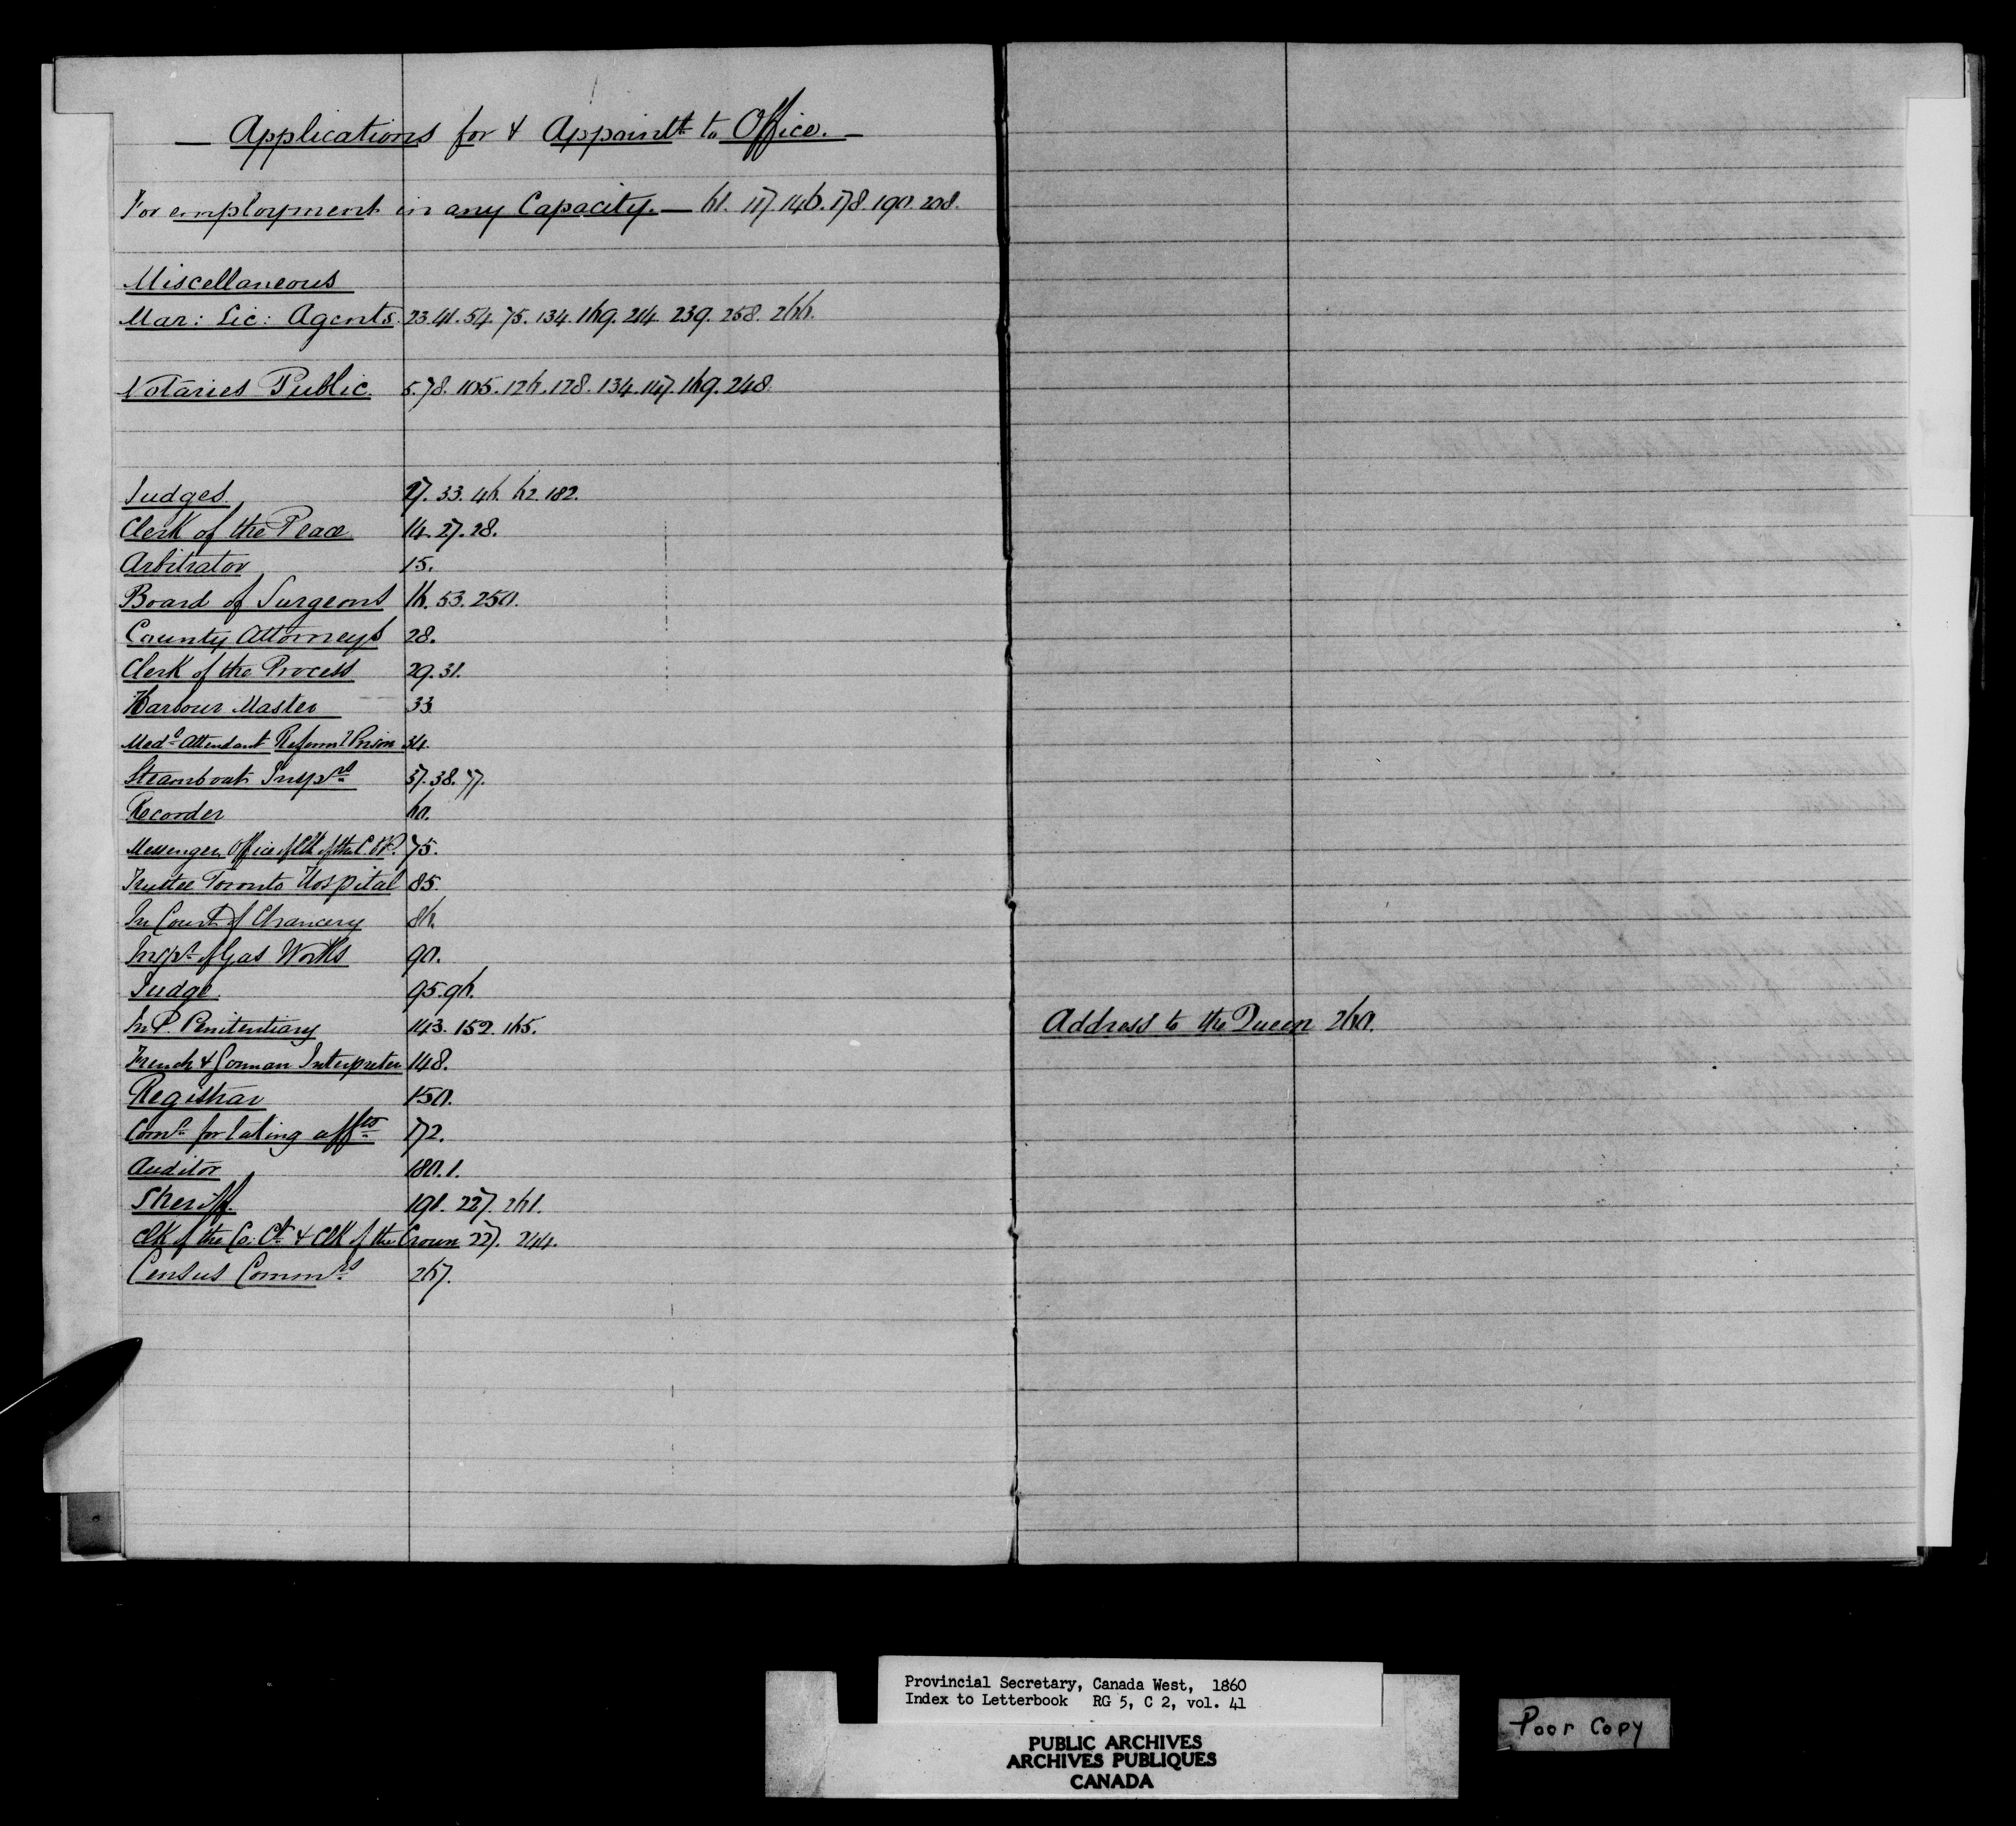 — Applications for & Appointt to Office. —
For employment in any Capacity. — 61. 117. 146. 178. 190. 208.
Miscellaneous
Mar: Lic: Agents. 23. 41. 54. 75. 134. 169. 214. 239. 258. 266.
Notaries Public. 5. 78. 105. 126. 128. 134. 147. 169. 248.
Judges 27. 33. 46. 62. 182.
Clerk of the Peace 14. 27. 28.
Arbitrator 15.
Board of Surgeons 16. 53. 250.
County Attorneys 28.
Clerk of the Process 29. 31.
Harbour Master 33
Medl Attendant Reformy Prison 34.
Steamboat Insprs 37. 38. 77.
Recorder 60.
Messenger Office of Clk of the C. & P. 75.
Trustee Toronto Hospital 85.
In Court of Chancery 86.
Inspr of Gas Works 90.
Judge. 95. 96.
In P. Penitentiary 143. 152. 165.
French & German Interpreter 148.
Registrar 150.
Comr for taking affts 172.
Auditor 180. 1.
Sheriff. 191. 227. 261.
Clk of the Co: Ct & Clk of the Crown 227. 244.
Census Commrs 267.
Address to the Queen 260.
Provincial Secretary, Canada West, 1860
Index to Letterbook RG 5, C 2, vol. 41
PUBLIC ARCHIVES
ARCHIVES PUBLIQUES
CANADA
Poor Copy